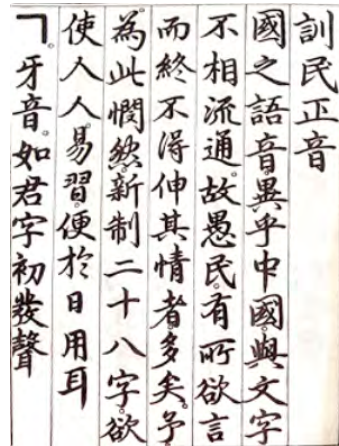 訓民正音
國之語音。異乎中國。與文字
不相流通。故愚民。有所欲言
而終不得伸其情者。多矣。予
為此憫然。新制二十八字。欲
使人人。易習。便於日用耳
ㄱ。牙音。如君字初發聲